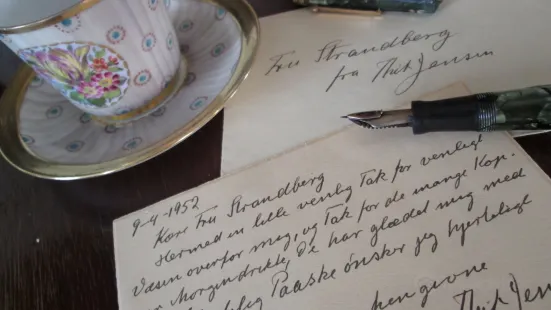 Fru Strandberg
fra Thit Jensen
9-4-1952
Kære Fru Strandberg
Hermed en lille venlig Tak for venligt
Væsen overfor mig, og Tak for de mange Kop.
Morgendrikke, De har glædet mig med
Paaske ønsker jeg hjerteligt
hengivne
Thit Jen